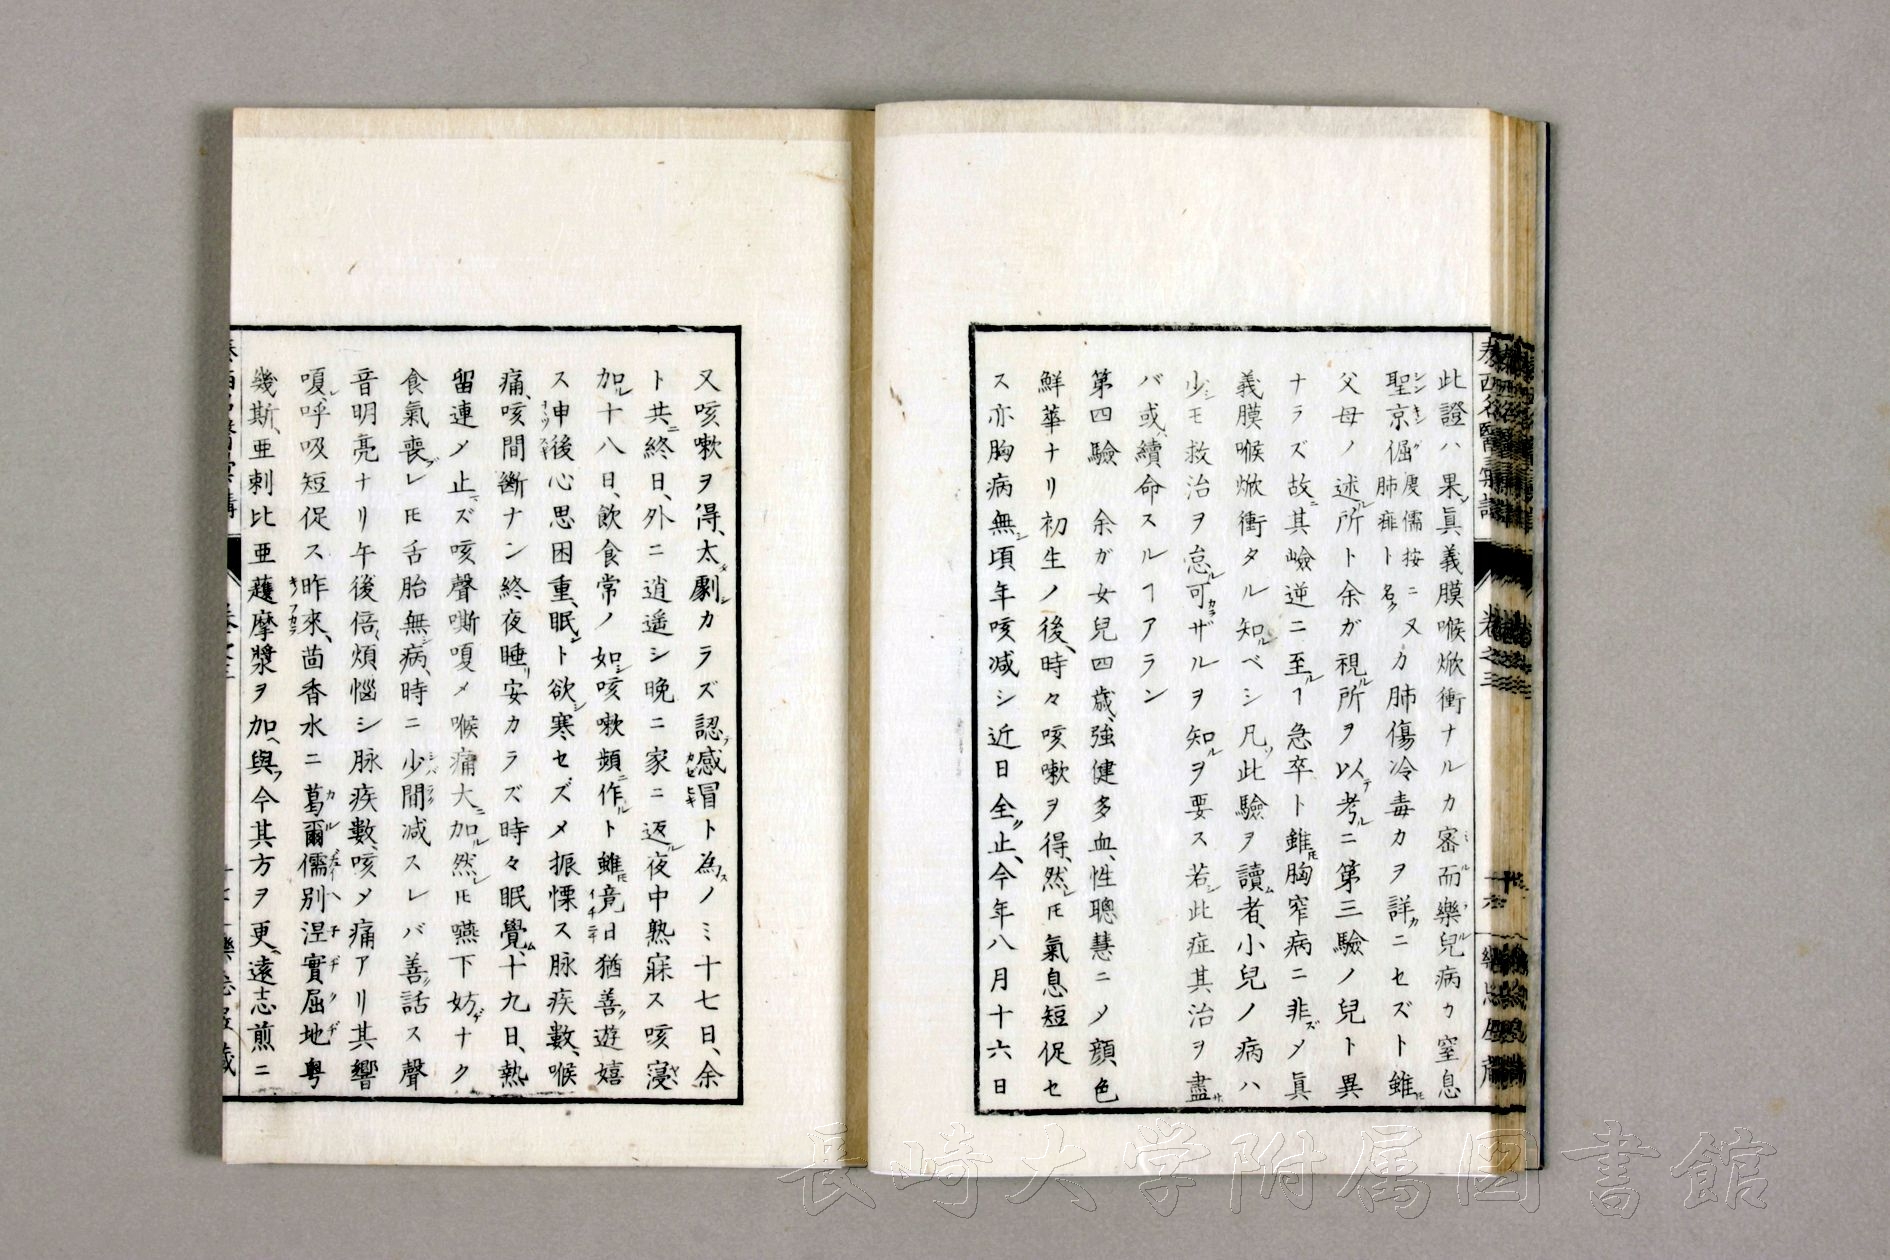 此證ハ果シ眞義膜喉焮衝ナルカ審而樂兒病カ窒息
聖京倔慶儒按ニ又カ肺傷冷毒カヲ詳ニセズト雖
肺痱ト名ク
父母ノ述ル所ト余ガ視ル所ヲ以テ考ルニ第三驗ノ兒ト異
ナラズ故ニ其嶮逆ニ至ルヿ急卒ト雖モ胸窄病ニ非ズメ眞
義膜喉焮衝タル知ルベシ凡ソ此驗ヲ讀ム者、小兒ノ病ハ
少シモ救治ヲ怠ル可ザルヲ知ルヲ要ス若シ此症其治ヲ盡サ
バ或ハ續命スルヿアラン
第四驗 余ガ女兒四歳、強健多血、性聰慧ニメ顔色
鮮華ナリ初生ノ後、時々咳嗽ヲ得、然レ𪜈氣息短促セ
ス亦胸病無シ頃年咳減シ近日全ク止、今年八月十六日
泰西名醫彙講 卷之三 十六
又咳嗽ヲ得、太タ劇シカラズ認テ感冒ト為スノミ十七日、余
ト共ニ終日、外ニ逍遥シ晩ニ家ニ返ル夜中熟寐ス咳寖ヤ
加ル十八日、飲食常ノ如シ咳嗽頻ニ作ルト雖𪜈竟日猶善ク遊嬉
ス申後心思困重、眠ント欲シ寒セズメ振慄ス脉疾數、喉
痛、咳間斷ナン終夜睡リ安カラズ時々眠覺ム、十九日、熱
留連ノ止マズ咳聲嘶嗄メ喉痛大ニ加ル然レ𪜈嚥下妨ナク
食氣喪レ𪜈舌胎無シ病、時ニ少間減スレバ善ク話ス聲
音明亮ナリ午後倍煩惱シ脉疾數、咳メ痛アリ其響
嗄レ、呼吸短促ス昨來、茴香水ニ葛爾儒別涅實屈地粤
幾斯、亜剌比亜護摩漿ヲ加ヘ與フ今其方ヲ更ヘ、遠志煎ニ